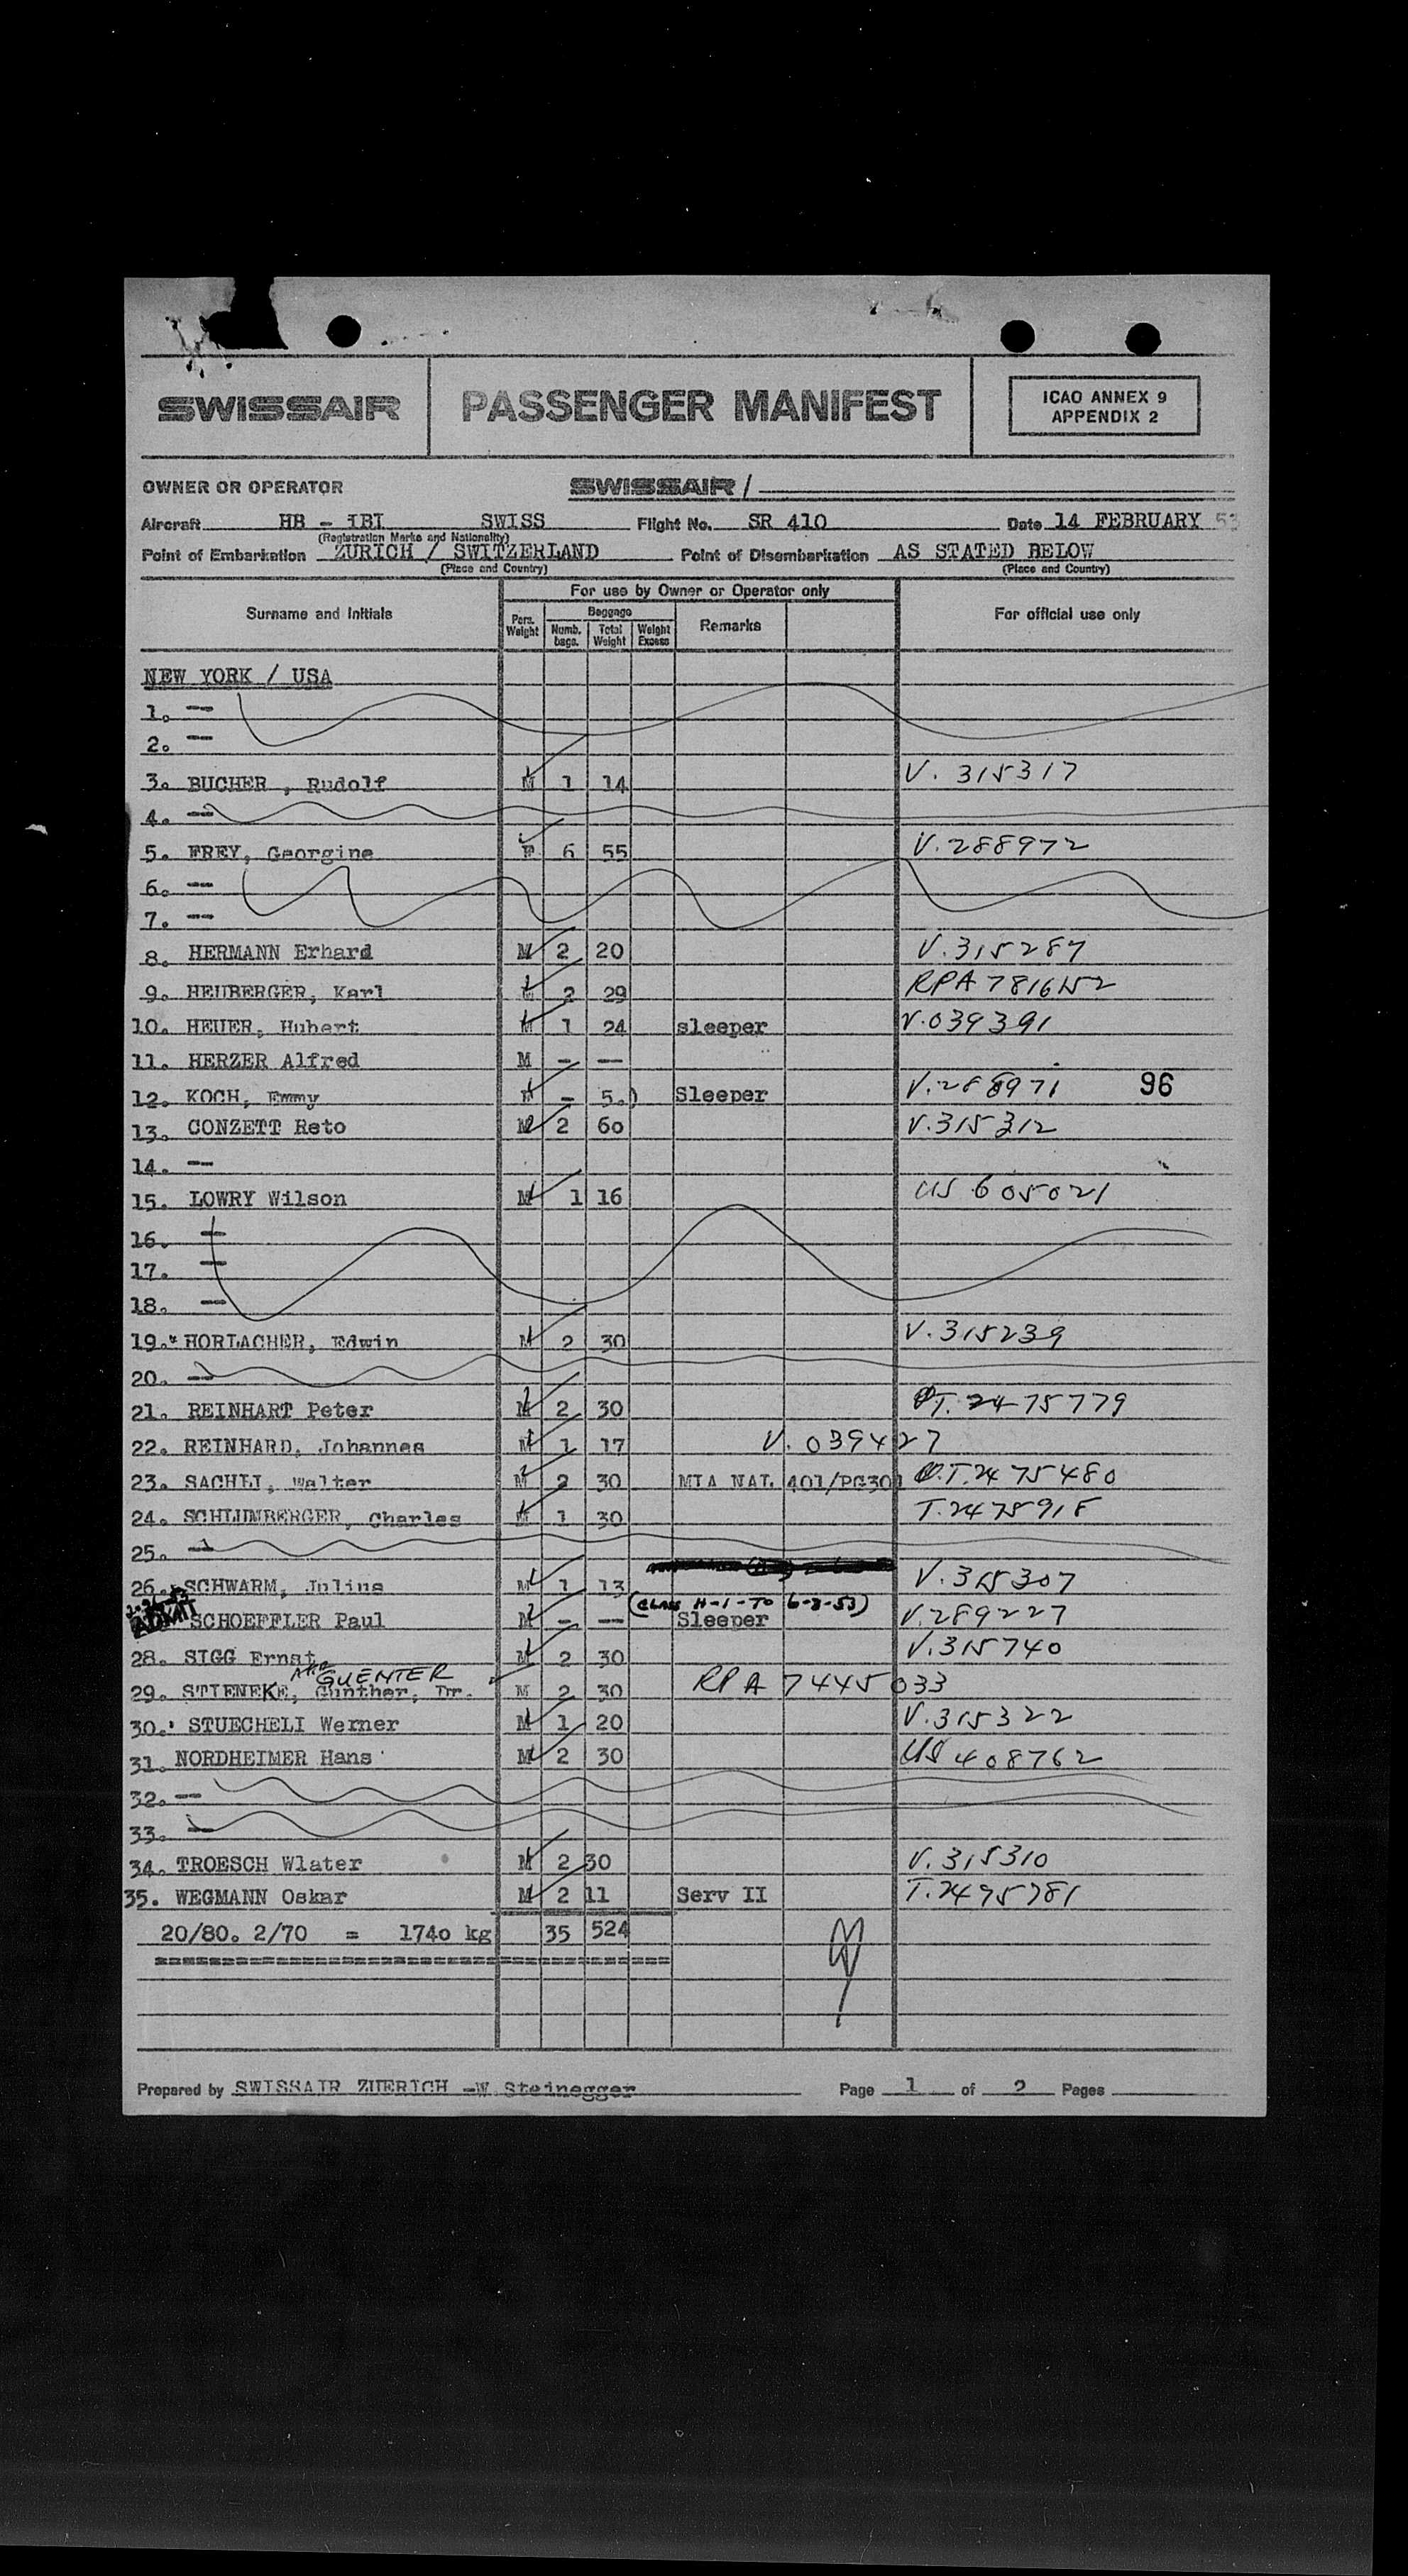 SWISSAIR PASSENGER MANIFEST ICAO ANNEX 9
APPENDIX 2
OWNER OR OPERATOR SWISSAIR /
Aircraft HB - IBI SWISS Flight No. SR 410 Date 14 FEBRUARY 53
(Registration Marks and Nationality)
Point of Embarkation ZURICH / SWITZERLAND Point of Disembarkation AS STATED BELOW
(Place and Country) (Place and Country)
For use by Owner or Operator only
Surname and Initials Pers. Weight Baggage Numb. bags. Total Weight Weight Excess Remarks For official use only
NEW YORK / USA
1. --
2. --
3. BUCHER , Rudolf M 1 14 V. 315317
4. --
5. FREY, Georgine F 6 55 V.288972
6. --
7. --
8. HERMANN Erhard M 2 20 V.315287
9. HEUBERGER, Karl M 2 29 RPA 7816152
10. HEUER, Hubert M 1 24 sleeper V.039391
11. HERZER Alfred M - --
12. KOCH, Emmy - 5.) Sleeper V.288971 96
13. CONZETT Reto M 2 60 V.315312
14. --
15. LOWRY Wilson M 1 16 US 605021
16. --
17. --
18. --
19. HORLACHER, Edwin M 2 30 V.315239
20. --
21. REINHART Peter M 2 30 T.2475779
22. REINHARD, Johannes M 1 17 V. 039427
23. SACHLI, Walter M 2 30 MIA NAL 401/PG301 T.2475480
24. SCHLUMBERGER, Charles M 1 30 T.2475918
25. --
26. SCHWARM, Julius M 1 13 V.315307
ADMIT (CLASS H-1-TO 6-8-53)
SCHOEFFLER Paul M - -- Sleeper V.289227
28. SIGG Ernst M 2 30 V.315740
AKA GUENTER
29. STIENEKE, Gunther, Dr. M 2 30 RPA 7445033
30. STUECHELI Werner M 1 20 V.315322
31. NORDHEIMER Hans M 2 30 US 408762
32. --
33. --
34. TROESCH Wlater M 2 30 V.315310
35. WEGMANN Oskar M 2 11 Serv II T.2495781
20/80. 2/70 = 1740 kg 35 524
Prepared by SWISSAIR ZUERICH -W. Steinegger Page 1 of 2 Pages